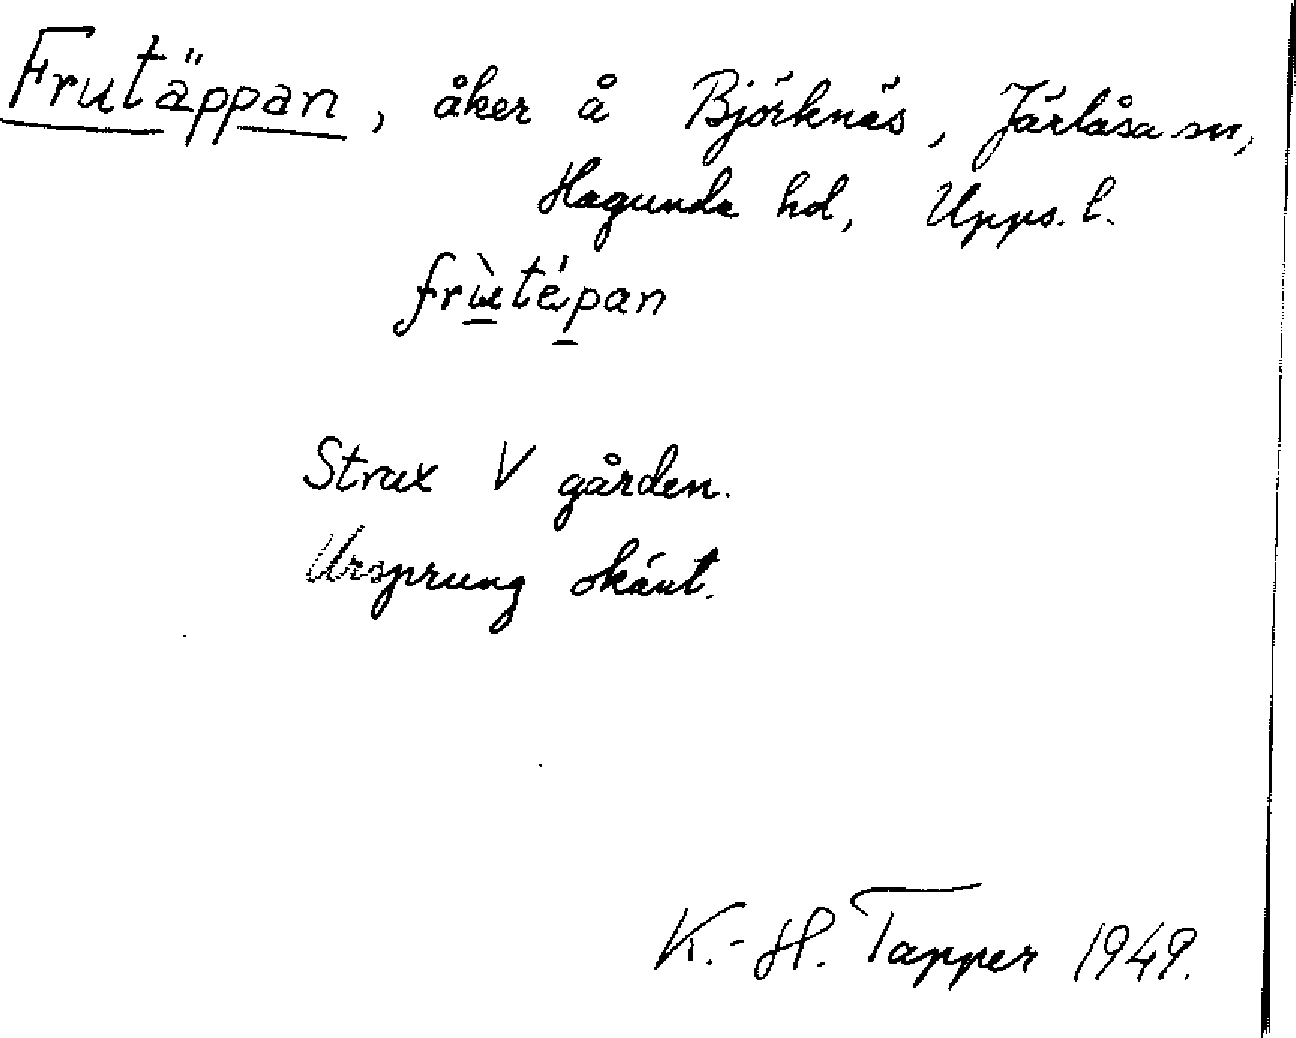 Frutäppan, åker å Björknäs, Järlåsa sn,
Hagunda hd, Upps. l.
frùtépan
Strax V gården.
Ursprung okänt.
K.-H. Tapper 1949.